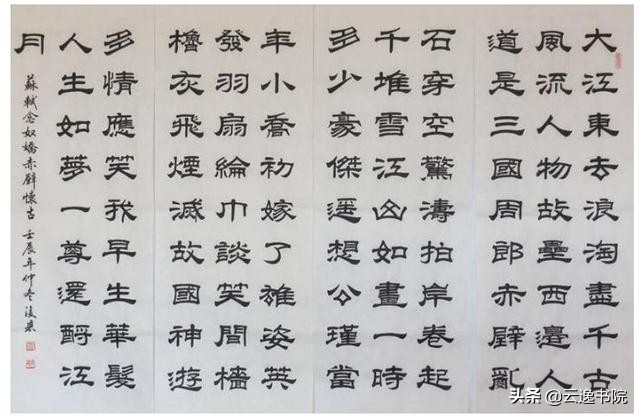 大江東去浪淘盡千古
風流人物故壘西邊人
道是三國周郎赤壁亂
石穿空驚濤拍岸卷起
千堆雪江山如畫一時
多少豪傑遥想公瑾當
年小喬初嫁了雄姿英
發羽扇綸巾談笑間檣
櫓灰飛煙滅故國神遊
多情應笑我早生華髮
人生如夢一尊還酹江
月
蘇軾念奴嬌赤壁懷古 壬辰年仲冬
头条 @云逸书院